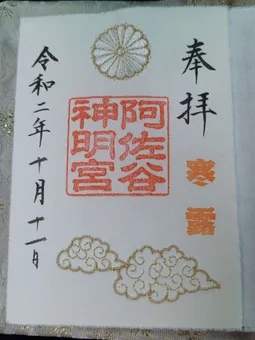 奉拝
寒露
阿佐谷
神明宮
令和二年十月十一日